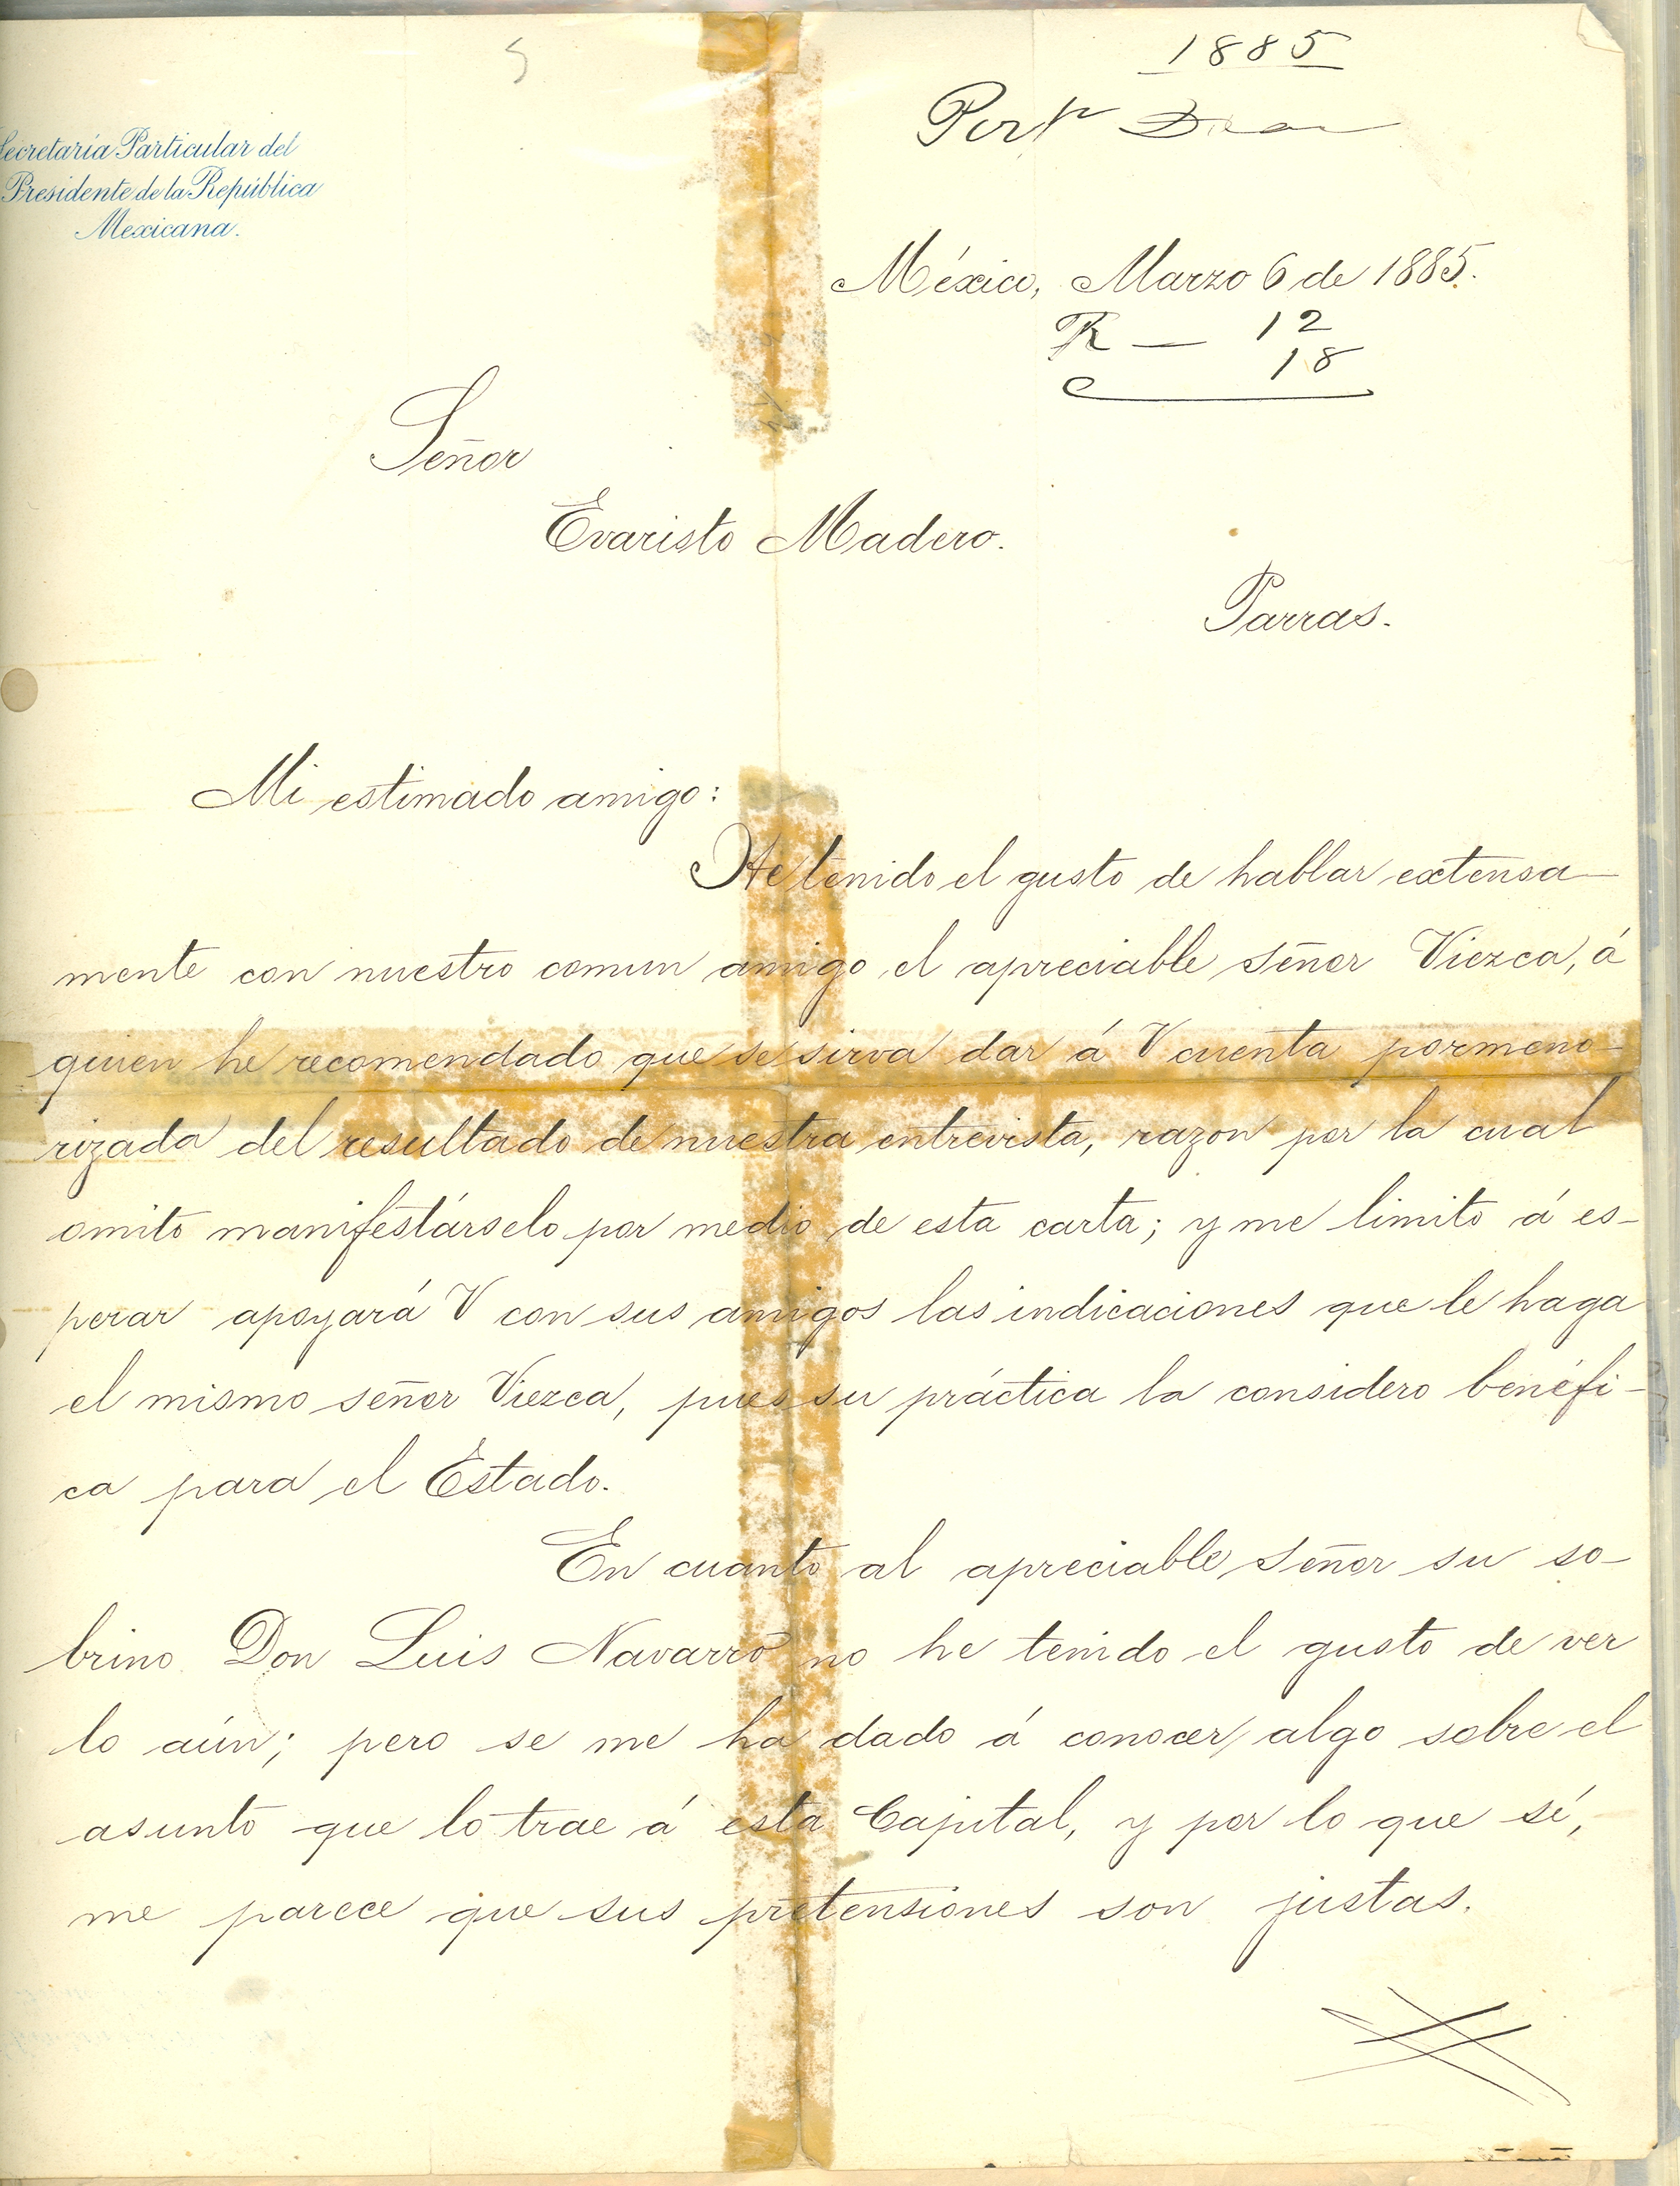 1885
Porf Diaz
Secretaría Particular del
Presidente de la República
Mexicana.
México, Marzo 6 de 1885.
R — 12
18
Señor
Evaristo Madero.
Parras.
Mi estimado amigo:
He tenido el gusto de hablar extensa-
mente con nuestro comun amigo el apreciable señor Viezca, á
quien he recomendado que se sirva dar á V cuenta pormeno-
rizada del resultado de nuestra entrevista, razon por la cual
omito manifestárselo por medio de esta carta; y me limito á es-
perar apoyará V con sus amigos las indicaciones que le haga
el mismo señor Viezca, pues su práctica la considero benéfi-
ca para el Estado.
En cuanto al apreciable señor su so-
brino Don Luis Navarro no he tenido el gusto de ver
lo aún; pero se me ha dado á conocer algo sobre el
asunto que lo trae á esta Capital, y por lo que sé,
me parece que sus pretensiones son justas.